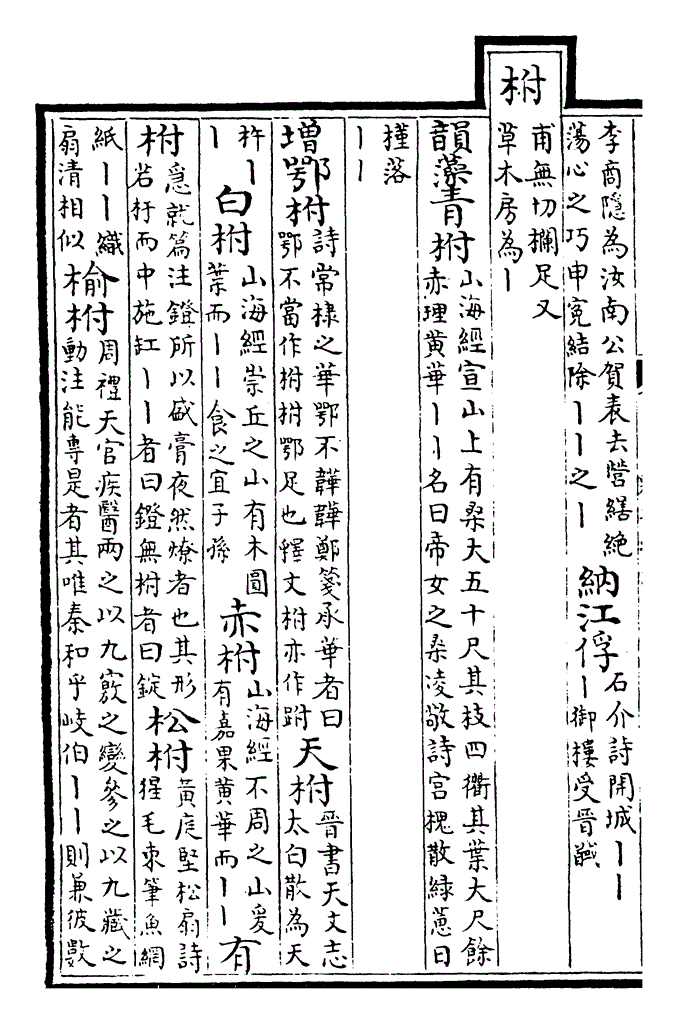 李商隱為汝南公賀表去營繕絕
蕩心之巧申寃結除丨丨之丨
納江俘
石介詩開城丨丨
丨御摟受晉馘
柎
甫無切欄足又
草木房為丨
韻藻青柎
山海經宣山上有桑大五十尺其枝四衢其葉大尺餘
赤理黃華丨丨名曰帝女之桑凌敬詩宫槐散緑蔥日
槿落
丨丨
增鄂柎
詩常棣之華鄂不韡韡鄭箋承華者曰
鄂不當作柎柎鄂足也釋文柎亦作跗
天柎
晉書天文志
太白散為天
杵丨
丨
白柎
山海經崇丘之山有木圓
葉而丨丨食之宜子孫
赤柎
山海經不周之山爰
有嘉果黃華而丨丨
有
柎
急就篇注鐙所以盛膏夜然燎者也其形
若杅而中施釭丨丨者曰鐙無柎者曰錠
松柎
黃庭堅松扇詩
猩毛束筆魚網
紙丨丨織
扇清相似
榆柎
周禮天官疾醫兩之以九竅之變參之以九藏之
動注能專是者其唯秦和乎岐伯丨丨則兼彼數